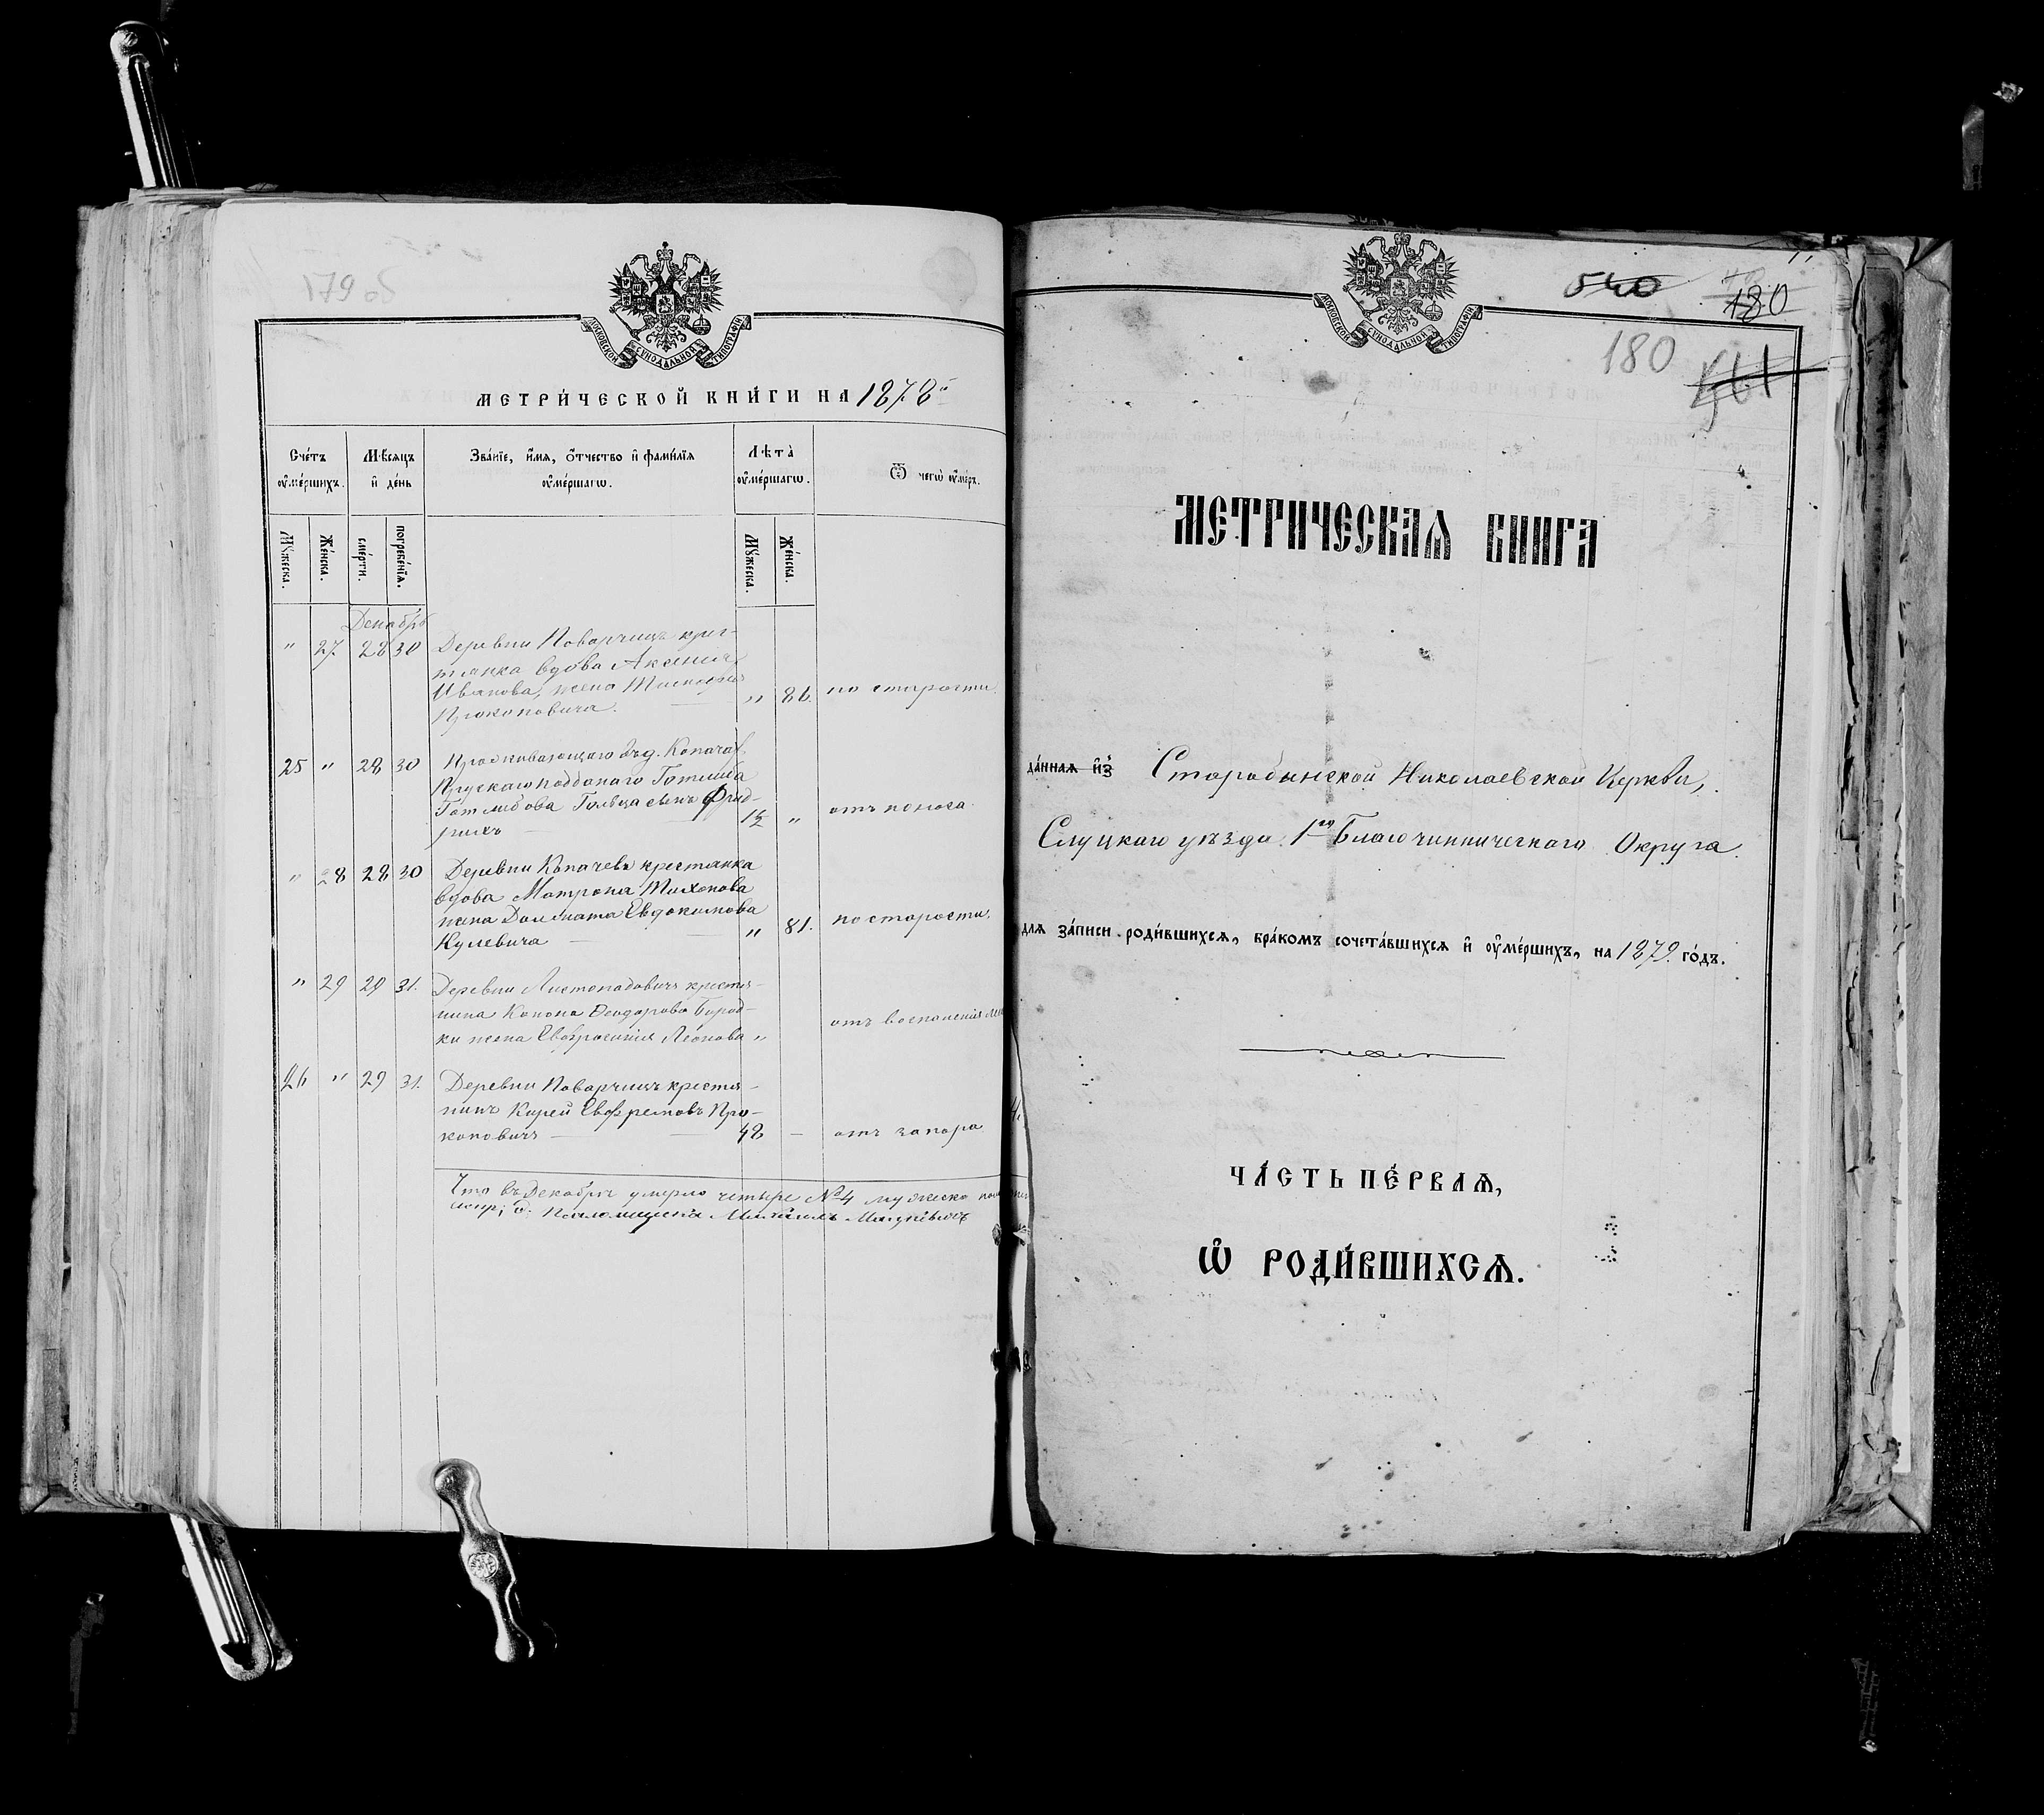 179 об
МОСКОВСКОЙ СѴНОДАЛЬНОЙ ТИПОГРАФІИ
МЕТРИ́ЧЕСКОЙ КНИ́ГИ НА 1878й
Сче́тъ ᲂу҆ме́ршихъ.
Мѣсяцъ и҆ де́нь
Зва́нїе, и҆́мѧ, ѻ҆́тчество и҆ фами́лїѧ ᲂу҆ме́ршагѡ.
Лѣ́та ᲂу҆ме́ршагѡ.
Ѿ чегѡ̀ ᲂу҆́меръ.
Мꙋ́жеска.
Же́нска.
сме́рти.
погребе́нїѧ.
Мꙋ́жеска.
Же́нска.
Декабрь
" 27 28 30 Деревни Поварчицъ крес-
тянка вдова Аксения
Иванова, жена
Прокоповича. " 86. по старости.
25 " 28 30 Проживающаго въ д. Копачах
Прускаго подданаго Готлиба
Готлибова Гольца сынъ Фрид-
рихъ 1½ " отъ поноса.
" 28 28 30 Деревни Копачевъ крестянка
вдова Матрона Тихонова
жена Далмата Евдокимова
Кулевича " 81. по старости.
" 29 29 31. Деревни Листопадовичъ крестья-
нина Конона Феодорова Бород-
ки жена Евфросиния Леонова " отъ воспаления
26 " 29 31. Деревни Поварчицъ крестья-
нинъ Карей Евфремовъ Про-
коповичъ 48 — отъ запора
Что въ Декабре умерло четыре №4 мужеска
540
180
180
МОСКОВСКОЙ СѴНОДАЛЬНОЙ ТИПОГРАФІИ
МЕТРИЧЕСКАѦ КНИГА
да́ннаѧ и҆з̾ Старобинской Николаевской Церкви,
Слуцкаго уѣзда 1го Благочинническаго Округа.
длѧ за́писи роди́вшихсѧ, бра́комъ сочета́вшихсѧ и҆ ᲂу҆ме́ршихъ, на 1879. го́дъ.
ЧА́СТЬ ПЕ́РВАѦ,
Ѡ҆ РОДИ́ВШИХСѦ.